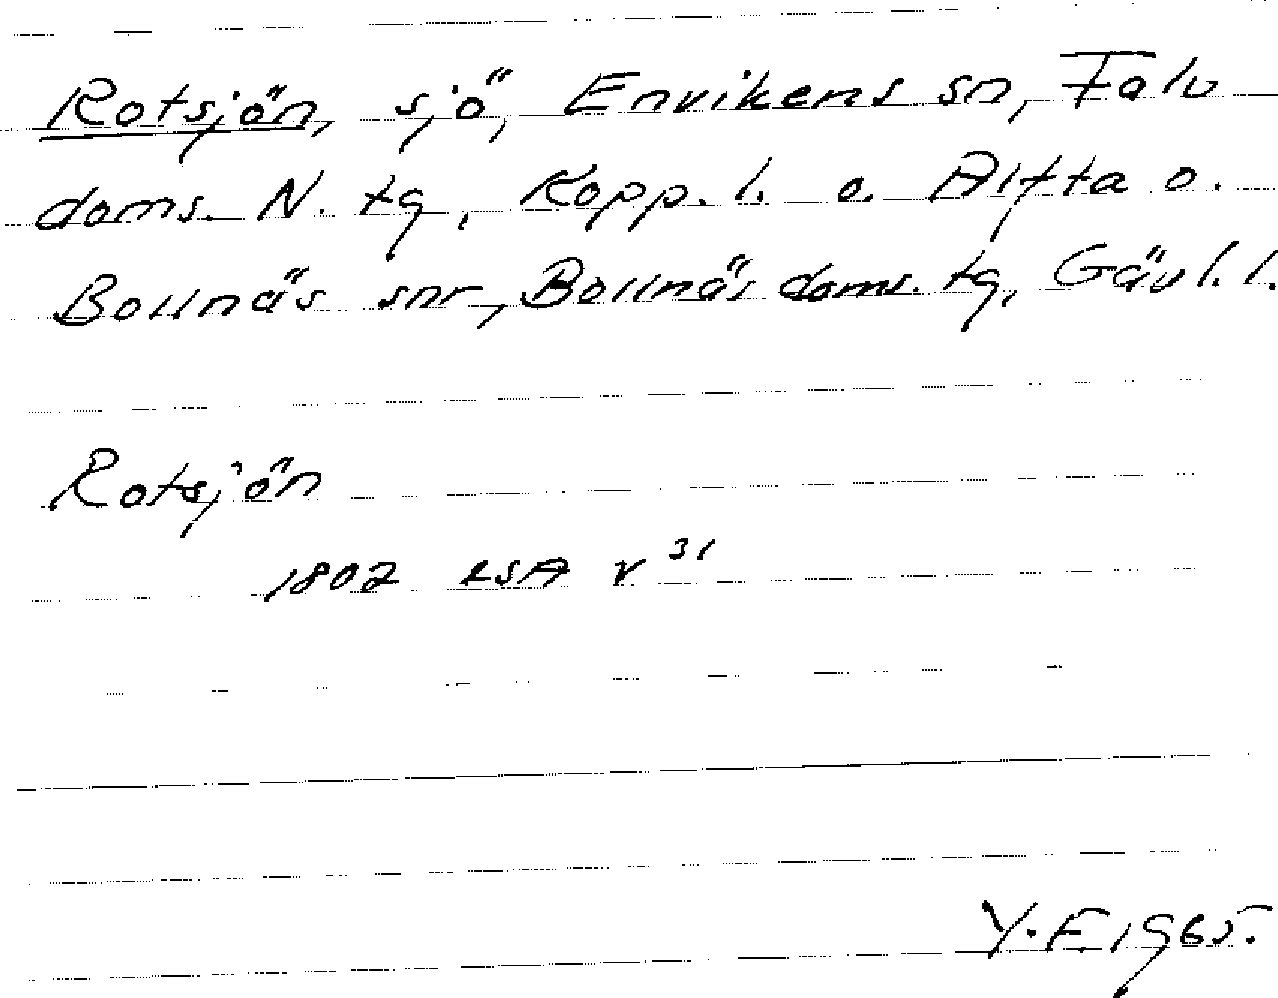 Rotsjön, sjö, Envikens sn, Falu
doms. N. tg, Kopp. l. o. Alfta o.
Bollnäs snr, Bollnäs doms. tg, Gävl. l.
Rotsjön
1802 LSA V 31
Y.F. 1965.